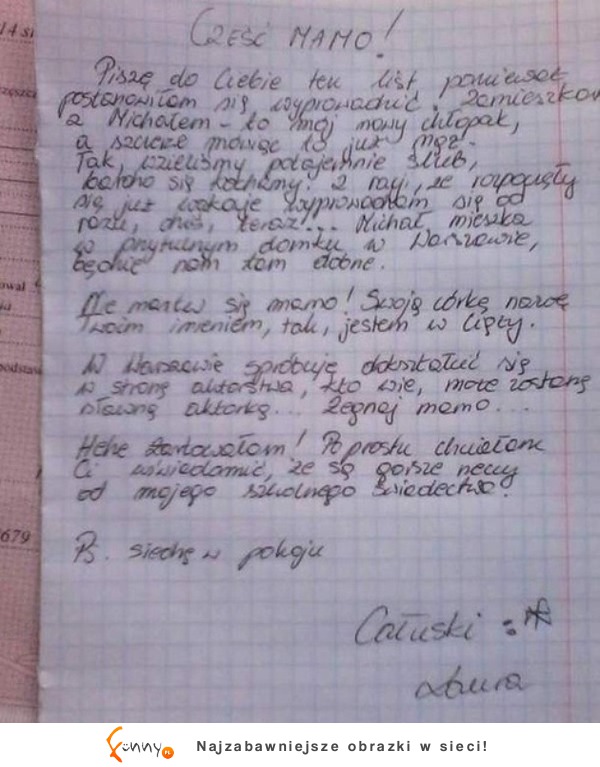 14 si
CZEŚĆ MAMO!
Piszę do Ciebie ten list, ponieważ
postanowiłam się wyprowadzić. Zamieszkam
z Michałem - to mój nowy chłopak,
a szczerze mówiąc to już mąż.
Tak, wzieliśmy potajemnie ślub,
bardzo się kochamy! Z racji, że rozpoczęły
się już wakacje wyprowadzam się od
razu, dziś, teraz!... Michał mieszka
w przytulnym domku w Warszawie,
będzie nam tam dobrze.
Nie martw się mamo! Swoją córkę nazwę
Twoim imieniem, tak, jestem w ciąży.
W Warszawie spróbuję dokształcić się
w stronę aktorstwa, kto wie, może zostanę
sławną aktorką... Żegnaj mamo...
Hehe żartowałam! Po prostu chciałam
Ci uświadomić, że są gorsze rzeczy
od mojego szkolnego świadectwa!
Ps. siedzę w pokoju
679
Całuski :*
Laura
Funny.PL
Najzabawniejsze obrazki w sieci!